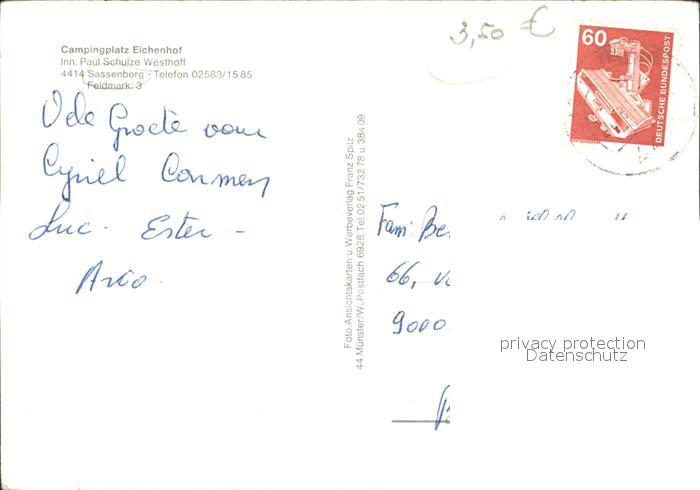 Campingplatz Eichenhof
Inh. Paul Schulze Westhoff
4414 Sassenberg - Telefon 02583/1585
Feldmark: 3
3,50 €
60
DEUTSCHE BUNDESPOST
Vele Groete van
Cyriel Carmen
Luc - Ester -
Arco.
Foto.Ansichtskarten u. Werbeverlag Franz Spitz
44 Münster/W., Postfach 6928, Tel. 02 51/732 78 u. 384 09
Fam Be
66,
9000
privacy protection
Datenschutz